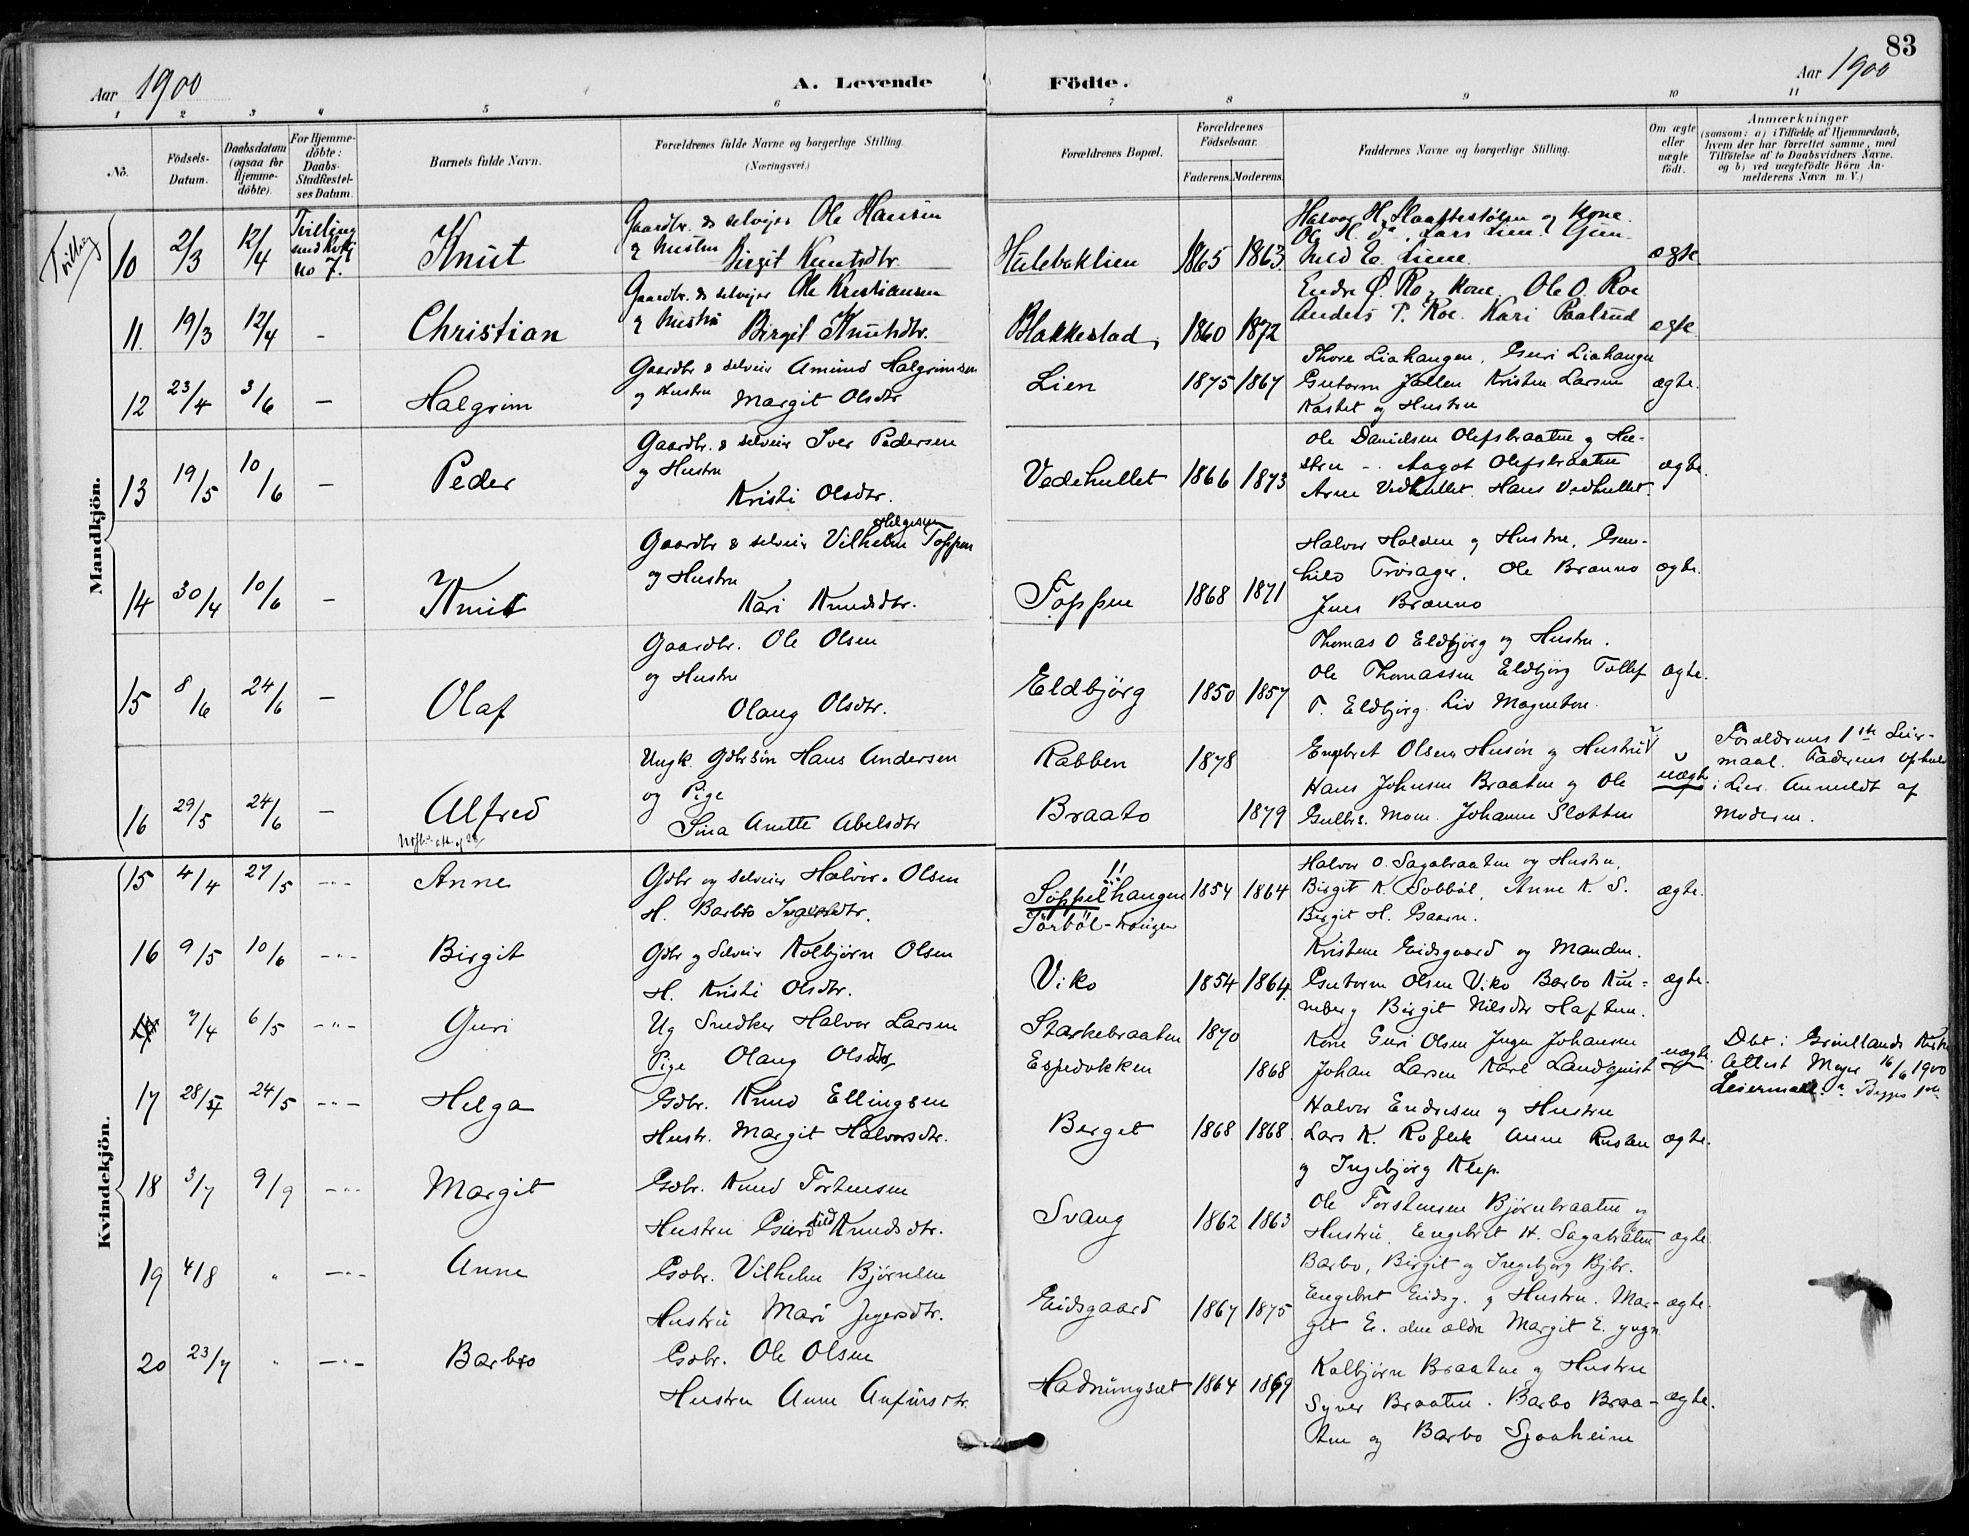 83
Aar 1900
A. Levende Födte.
Aar 1900
1 2 3 4 5 6 7 8 9 10 11
No.
Födsels-Datum.
Daabsdatum (ogsaa for Hjemme-döbte).
For Hjemme-döbte: Daabs-Stadfestel-ses Datum.
Barnets fulde Navn.
Forældrenes fulde Navne og borgerlige Stilling. (Næringsvei.)
Forældrenes Bopæl.
Forældrenes Födselsaar.
Faderens. Moderens.
Faddernes Navne og borgerlige Stilling.
Om ægte eller uægte födt.
Anmærkninger
(saasom: a) i Tilfælde af Hjemmedaab, hvem der har forrettet samme, med Tilföielse af to Daabsvidners Navne, og b) ved uægtefödte Börn An-melderens Navn m. V.)
Mandkjön.
Tvilling
10 2/3 12/4 Tvilling no 7. Knut
Gaardbr. & selveier Ole Hansen
og Hustru Birgit Knutsdtr.
Hulebaklien 1865 1863
Halvor H. og Kone.
Ole H. do, Lars Lien. Gun-
hild E. Liene.
ægte
11. 19/3 12/4 - Christian
Gaardbr. & selveier Ole Kristiansen
og Hustru Birgit Knutsdtr.
Blakkestad, 1860 1872
Endre Ø. Ro, Kone. Ole O. Roe
Anders P. Roe. Kari Paalsrud
ægte.
12 23/4 3/6 - Halgrim
Gaardbr & selveier Amund Halgrimsen
og Hustru Margit Olsdtr
Lien 1875 1867
Thore Liahaugen, Guri Liahaugen
Guttorm Jallen Kristen Larsen
Kastet og Hustru
ægte.
13 19/5 10/6 - Peder
Gaardbr. & selveier Iver Pedersen
og Hustru
Kristi Olsdtr.
Vedehullet 1866 1873
Ole Danielsen Olefsbraaten og Hu-
stru -. Aagot Olefsbraaten
Arne Vedhullet. Hans Vedhullet.
ægte.
14 30/4 10/6 - Knut
Gaardbr & selveier Vilhelm Helgesen Toppen
og Hustru
Kari Knudsdtr.
Toppen 1868 1871
Halvor Holden og Hustru, Gun-
hild Trøsager. Ole Brænno
Jens Brænno
ægte.
15 8/6 24/6 - Olaf
Gaardbr. Ole Olsen
og Hustru
Olaug Olsdtr.
Eldbjörg 1850 1857
Thomas O Eldbjørg og Hustru.
Ole Thomassen Eldbjørg Tollef
T. Eldbjørg. Liv Magneten.
ægte.
16 29/5 24/6 - Alfred
Ungk. Gdbrsøn Hans Andersen
og Pige
Sina Anette Abelsdtr
Rabben 1878
Braato 1879
Engebret Olsen Husøn og Hustru
Hans Johnsen Braaten og Ole
Gulbr. Moen. Johanne Slotten
uægte
Forældrenes 1ste Leir-
maal. Faderens Ophold
i Lier. Anmeldt af
Moderen.
Kvindekjön.
15 4/4 27/5 -"- Anne
Gdbr og selveier Halvor Olsen
H. Barbro Ingersdtr.
Søppelhaugen
Törböl-haugen
1854 1864
Halvor O. Sagabraaten og Hustru,
Birgit K. Sobböl, Anne K. S.
Birgit H. Gaarn.
ægte.
16 9/5 10/6 -"- Birgit
Gdbr og Selveier Kolbjørn Olsen
H. Kristi Olsdtr.
Viko 1854 1864.
Kristene Eidsgaard og Manden.
Guttorm Olsen Viko Barbo Rin-
neberg Birgit Nilsdtr Haftun.
ægte.
7/4 6/5 -"- Guri
Ug Snedker Halvor Larsen
Pige Olaug Olsdtr
Starkebraaten 1870
Espedokken 1868
Kone Guri Olsen Inga Johansen
Johan Larsen Karl Landquist
uægte.
Dbt i Grønlands Kirke
Attest Meyer 16/6 1900
Leiermaal: Begges 1ste
17 28/4 24/5 -"- Helga
Gdbr. Knud Ellingsen
Hustr. Margit Halvorsdtr.
Berget 1868 1868.
Halvor Endresen og Hustru
Lars K. Anne Rustan
og Ingebjørg Klep.
ægte.
18 3/7 9/9 -"- Margit
Gdbr. Knud Torstensen
Hustru Guro Knudsdtr.
Svang 1862 1863
Ole Torstensen Bjørnbraaten og
Hustru. Engebret H. Sagabråten
Barbo, Birgit og Ingebjørg Bjbr.
ægte.
19 4/8 " -"- Anne
Gdbr. Vilhelm Bjørnsen
Hustru Mari Jegersdtr.
Eidsgaard 1867 1875
Engebret Eidsg. og Hustru. Mar-
git E. den ældre Margit E. yngre
ægte.
20 23/7 " -"- Barbro
Gdbr. Ole Olsen
Hustru Anne Anfinsdtr.
Hadnungsæt 1864 1869
Kolbjørn Braaten og Hustru
Syver Braaten. Barbo Braa-
ten og Barbo Sjaaheim
ægte.